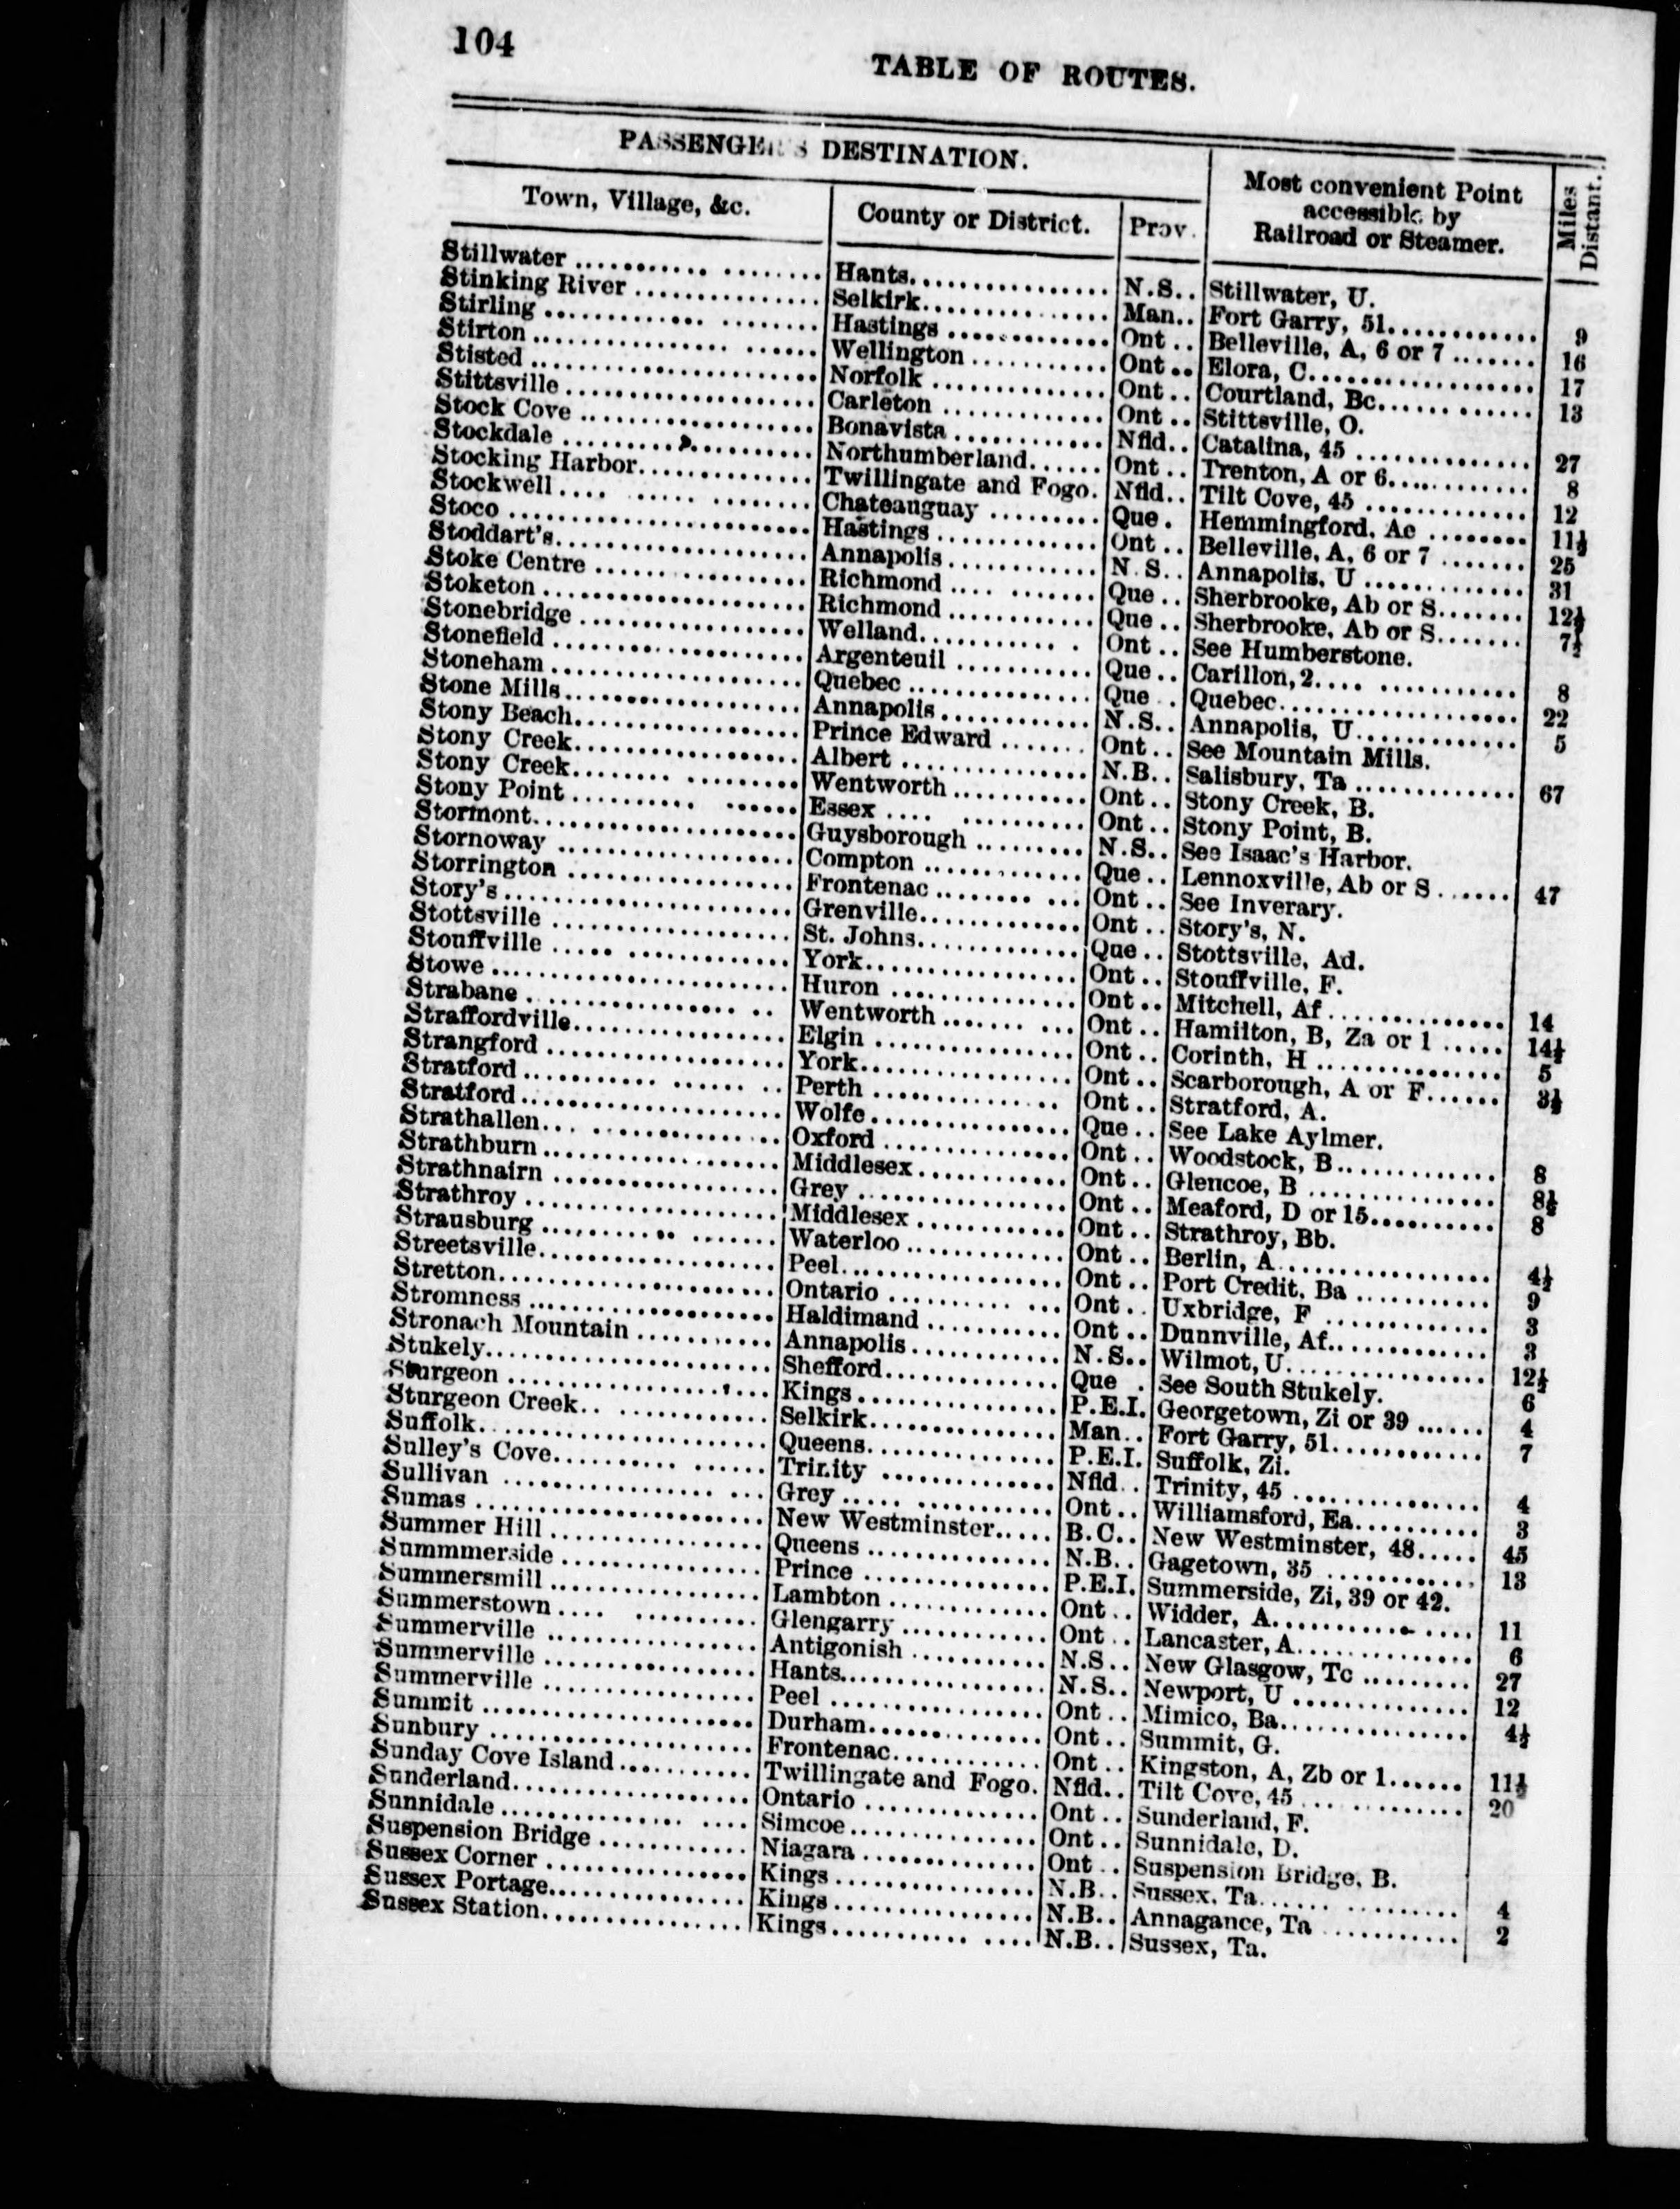 104
TABLE OF ROUTES.
PASSENGER'S DESTINATION.
Most convenient Point accessible by Railroad or Steamer.
Miles Distant.
Town, Village, &c.
County or District.
Prov.
Stillwater Hants N.S. Stillwater, U.
Stinking River Selkirk Man Fort Garry, 51 9
Stirling Hastings Ont Belleville, A, 6 or 7 16
Stirton Wellington Ont Elora, C 17
Stisted Norfolk Ont Courtland, Bc 13
Stittsville Carleton Ont Stittsville, O.
Stock Cove Bonavista Nfld Catalina, 45 27
Stockdale Northumberland Ont Trenton, A or 6 8
Stocking Harbor Twillingate and Fogo. Nfld Tilt Cove, 45 12
Stockwell Chateauguay Que. Hemmingford, Ac 11½
Stoco Hastings Ont Belleville, A, 6 or 7 25
Stoddart's Annapolis N.S. Annapolis, U 31
Stoke Centre Richmond Que Sherbrooke, Ab or S 12½
Stoketon Richmond Que Sherbrooke, Ab or S 7½
Stonebridge Welland Ont See Humberstone.
Stonefield Argenteuil Que Carillon, 2 8
Stoneham Quebec Que Quebec 22
Stone Mills Annapolis N.S. Annapolis, U 5
Stony Beach Prince Edward Ont See Mountain Mills.
Stony Creek Albert N.B. Salisbury, Ta 67
Stony Creek Wentworth Ont Stony Creek, B.
Stony Point Essex Ont Stony Point, B.
Stormont Guysborough N.S. See Isaac's Harbor.
Stornoway Compton Que Lennoxville, Ab or S 47
Storrington Frontenac Ont See Inverary.
Story's Grenville Ont Story's, N.
Stottsville St. Johns Que Stottsville, Ad.
Stouffville York Ont Stouffville, F.
Stowe Huron Ont Mitchell, Af 14
Strabane Wentworth Ont Hamilton, B, Za or 1 14½
Straffordville Elgin Ont Corinth, H 5
Strangford York Ont Scarborough, A or F 3½
Stratford Perth Ont Stratford, A.
Stratford Wolfe Que See Lake Aylmer.
Strathallen Oxford Ont Woodstock, B 8
Strathburn Middlesex Ont Glencoe, B 8½
Strathnairn Grey Ont Meaford, D or 15 8
Strathroy Middlesex Ont Strathroy, Bb.
Strausburg Waterloo Ont Berlin, A 4½
Streetsville Peel Ont Port Credit, Ba 9
Stretton Ontario Ont Uxbridge, F 3
Stromness Haldimand Ont Dunnville, Af 3
Stronach Mountain Annapolis N.S. Wilmot, U 12½
Stukely Shefford Que. See South Stukely. 6
Sturgeon Kings P.E.I. Georgetown, Zi or 39 4
Sturgeon Creek Selkirk Man Fort Garry, 51 7
Suffolk Queens P.E.I. Suffolk, Zi.
Sulley's Cove Trinity Nfld Trinity, 45 4
Sullivan Grey Ont Williamsford, Ea 3
Sumas New Westminster B.C. New Westminster, 48 45
Summer Hill Queens N.B. Gagetown, 35 13
Summmerside Prince P.E.I. Summerside, Zi, 39 or 42.
Summersmill Lambton Ont Widder, A 11
Summerstown Glengarry Ont Lancaster, A 6
Summerville Antigonish N.S. New Glasgow, Tc 27
Summerville Hants N.S. Newport, U 12
Summerville Peel Ont Mimico, Ba 4½
Summit Durham Ont Summit, G.
Sunbury Frontenac Ont Kingston, A, Zb or 1 11½
Sunday Cove Island Twillingate and Fogo. Nfld Tilt Cove, 45 20
Sunderland Ontario Ont Sunderland, F.
Sunnidale Simcoe Ont Sunnidale, D.
Suspension Bridge Niagara Ont Suspension Bridge, B.
Sussex Corner Kings N.B. Sussex, Ta 4
Sussex Portage Kings N.B. Annagance, Ta 2
Sussex Station Kings N.B. Sussex, Ta.